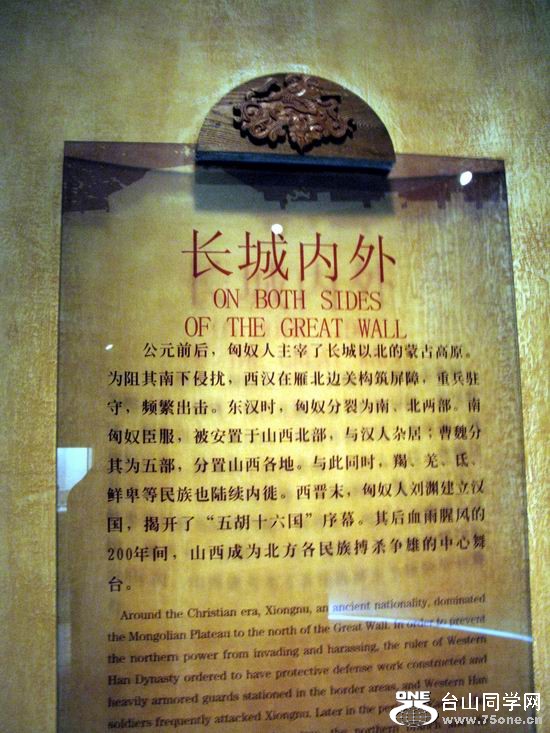 长城内外
ON BOTH SIDES
OF THE GREAT WALL
公元前后，匈奴人主宰了长城以北的蒙古高原。
为阻其南下侵扰，西汉在雁北边关构筑屏障，重兵驻
守，频繁出击。东汉时，匈奴分裂为南、北两部。南
匈奴臣服，被安置于山西北部，与汉人杂居；曹魏分
其为五部，分置山西各地。与此同时，羯、羌、氐、
鲜卑等民族也陆续内徙。西晋末，匈奴人刘渊建立汉
国，揭开了“五胡十六国”序幕。其后血雨腥风的
200年间，山西成为北方各民族搏杀争雄的中心舞
台。
Around the Christian era, Xiongnu, an ancient nationality, dominated
the Mongolian Plateau to the north of the Great Wall. In order to prevent
the northern power from invading and harassing, the ruler of Western
Han Dynasty ordered to have protective defense work constructed and
heavily armored guards stationed in the border areas, and Western Han
soldiers frequently attacked Xiongnu. Later in the
the northern branch
ONE
台山同学网
www.75one.cn